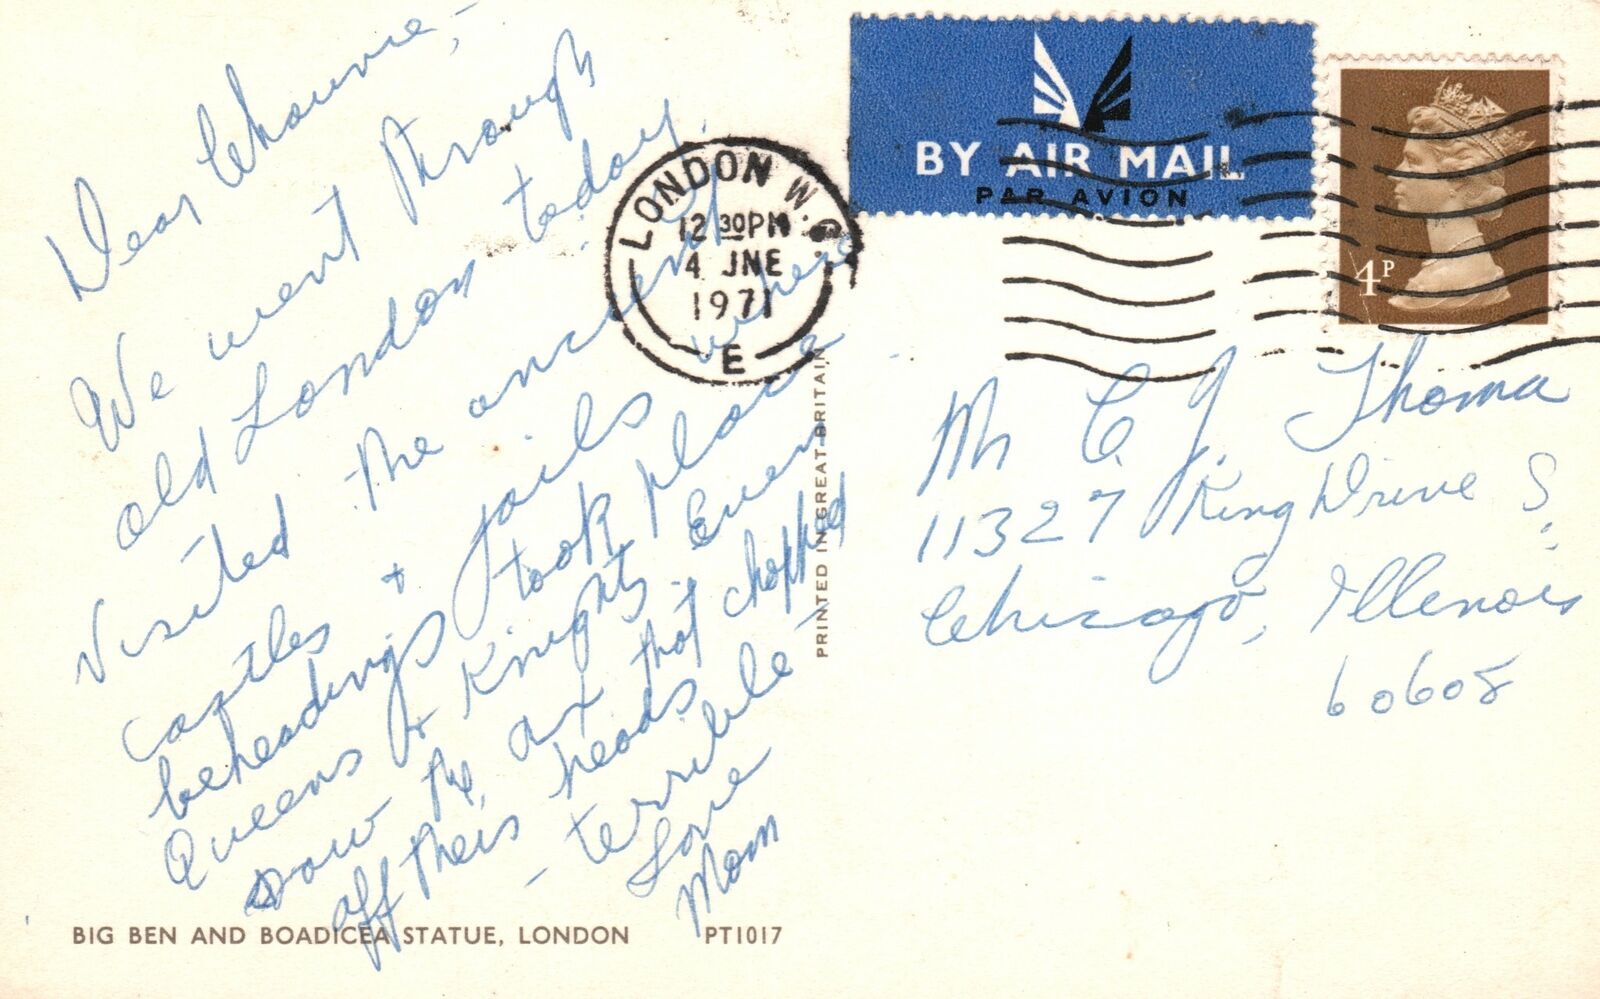 Dear Chounie,
We went through
old London today.
Visited the ancient
castles + jails where
beheadings took place
Queens + Knights. Even
saw the ax that chopped
off their heads
- terrible -
Love
Mom
BIG BEN AND BOADICEA STATUE, LONDON PT1017
PRINTED IN GREAT BRITAIN
LONDON W.C.
12 30PM
4 JNE
1971
E
BY AIR MAIL
PAR AVION
4P
Mr C. J. Thoma
11327 King Drive S.
Chicago, Illenois
60608